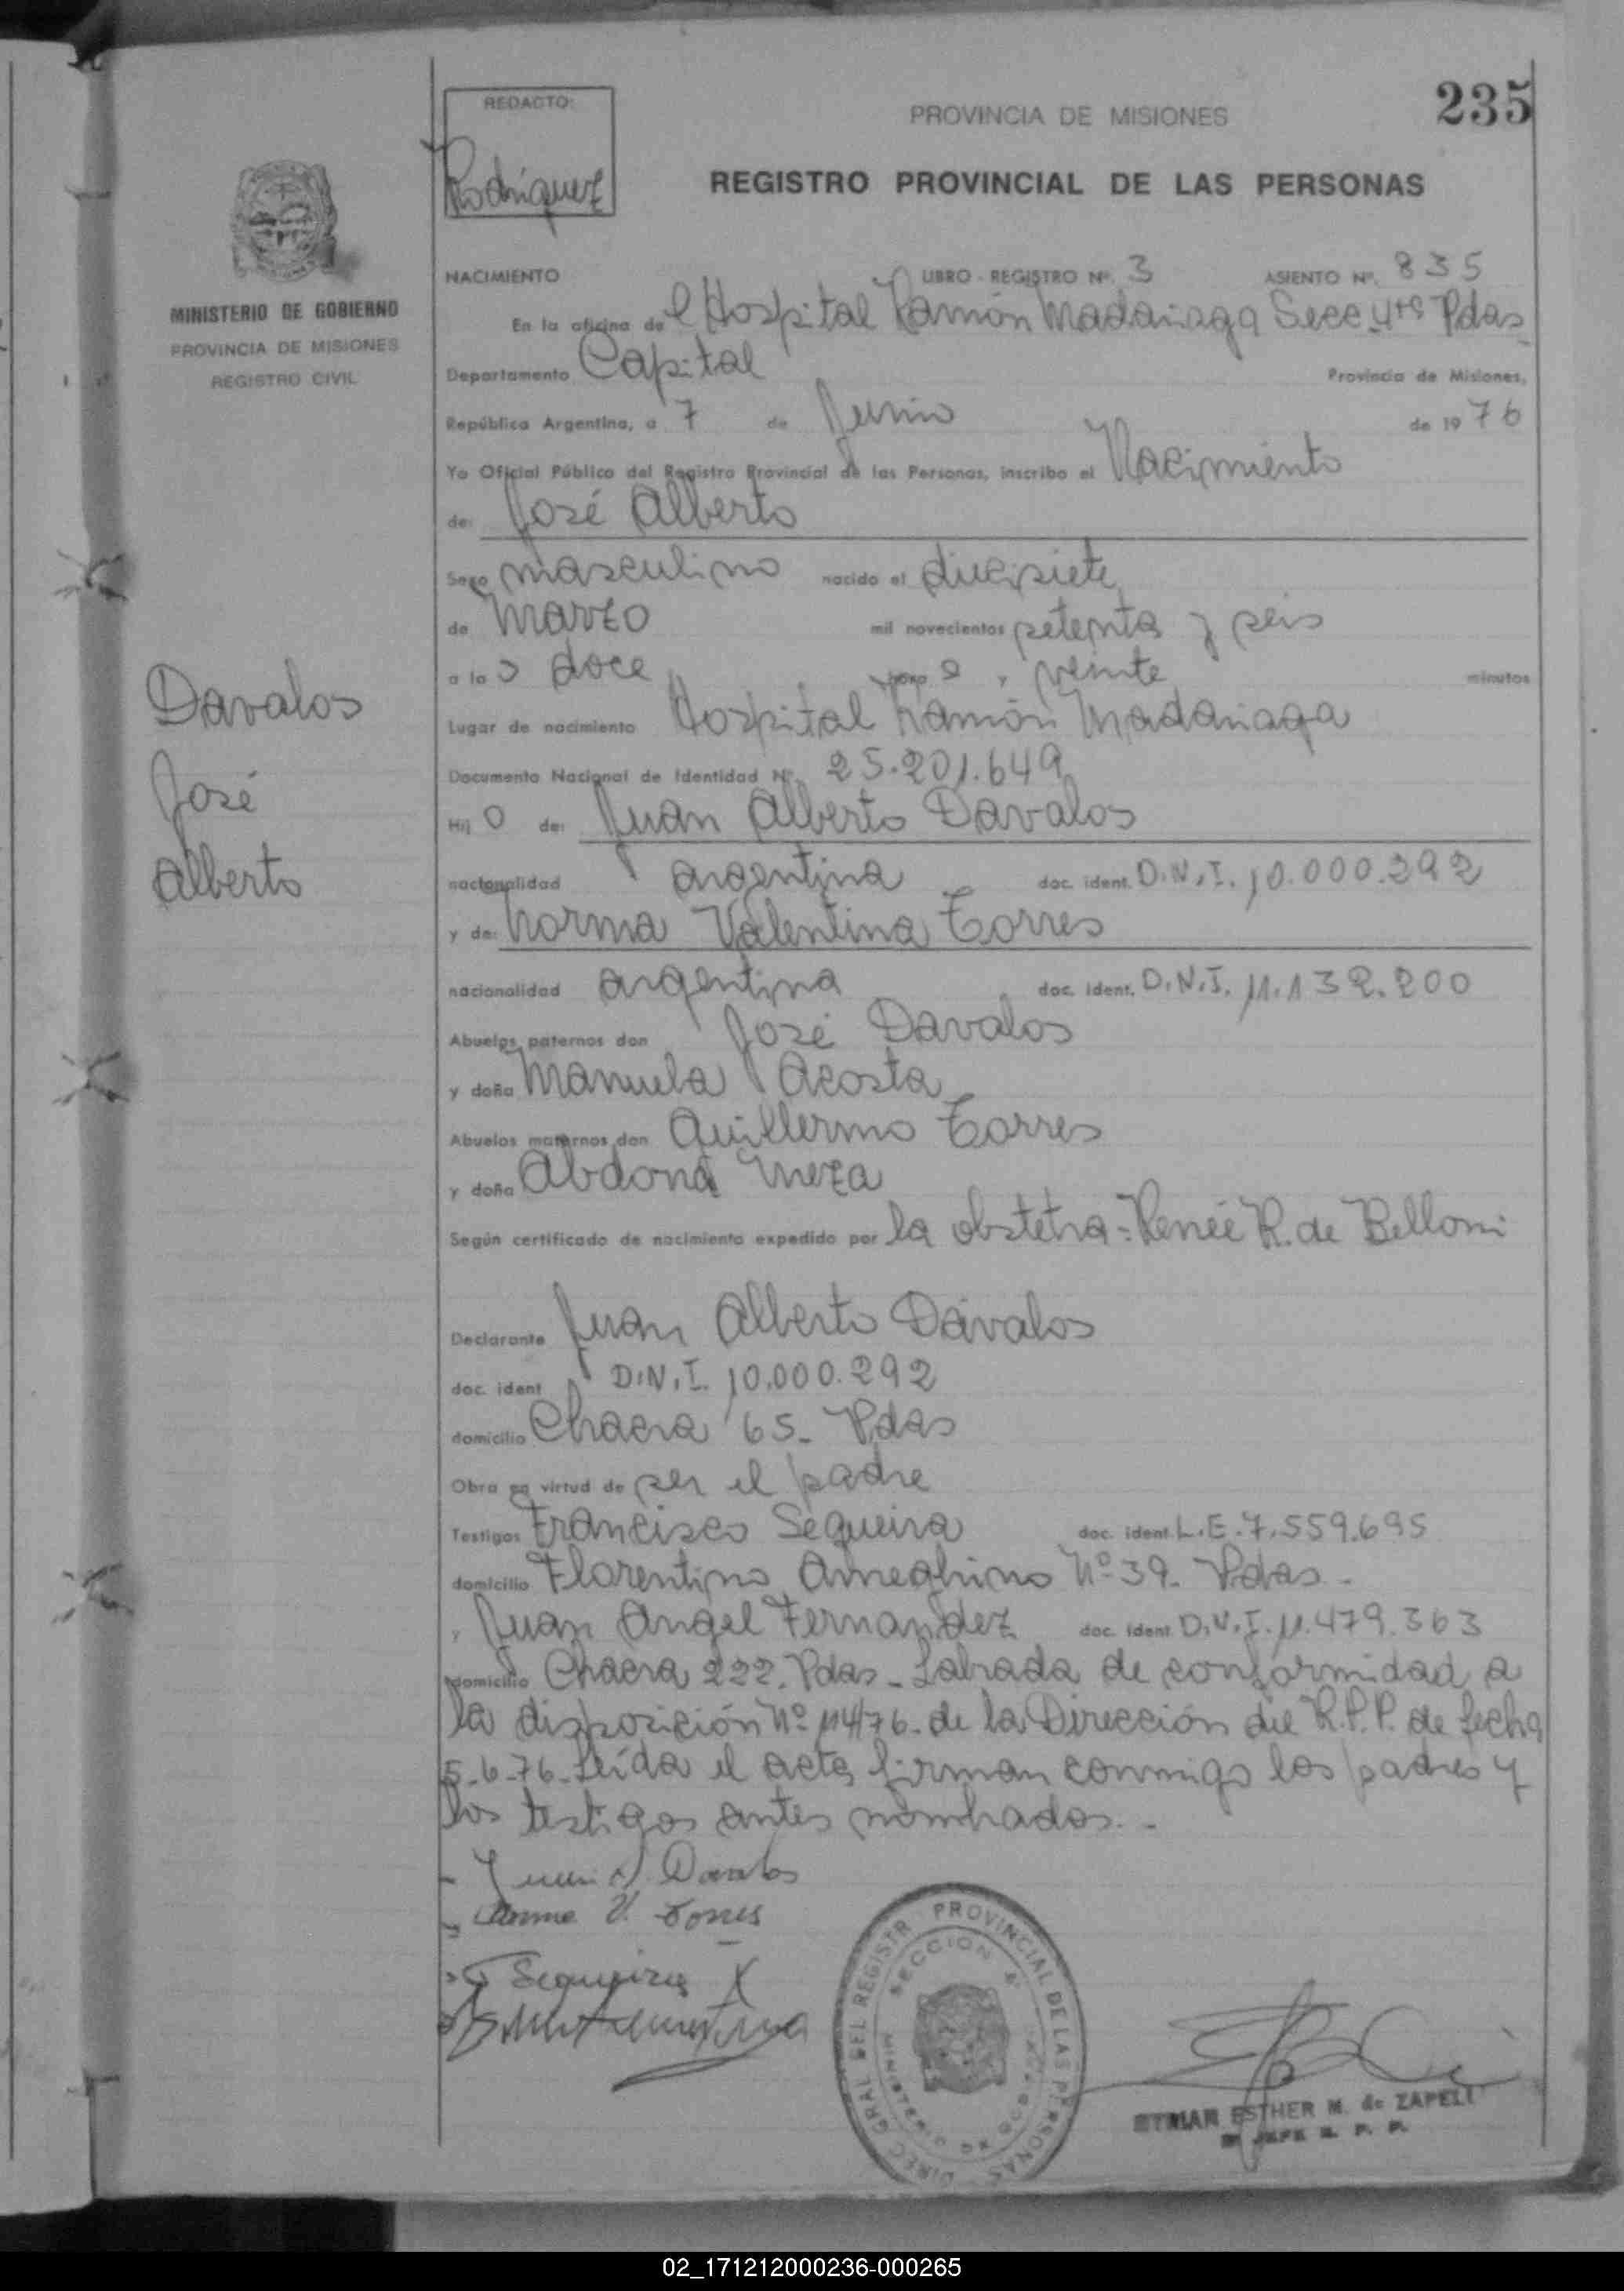 235
REDACTO:
Rodriguez
PROVINCIA DE MISIONES
REGISTRO PROVINCIAL DE LAS PERSONAS
MINISTERIO DE GOBIERNO
PROVINCIA DE MISIONES
REGISTRO CIVIL
Davalos
José
Alberto
NACIMIENTO LIBRO - REGISTRO Nº. 3 ASIENTO Nº. 835
En la oficina del Hospital Ramón Madariaga Secc 4ta Pdas
Departamento Capital Provincia de Misiones,
República Argentina, a 7 de Junio de 19 76
Yo Oficial Público del Registro Provincial de las Personas, inscribo el Nacimiento
de: José Alberto
Sexo masculino nacido el diecisiete
de Marzo mil novecientos setenta y seis
a las doce horas, veinte minutos
Lugar de nacimiento Hospital Ramón Madariaga
Documento Nacional de Identidad Nº. 25.201.649
Hijo de: Juan Alberto Davalos
nacionalidad argentina doc. ident. D.N.I. 10.000.292
y de: Norma Valentina Torres
nacionalidad argentina doc. ident. D.N.I. 11.132.200
Abuelos paternos don José Davalos
y doña Manuela Acosta
Abuelos maternos don Guillermo Torres
y doña Abdona Meza
Según certificado de nacimiento expedido por la obstetra - Renée R. de Belloni
Declarante Juan Alberto Dávalos
doc. ident D.N.I. 10.000.292
domicilio Chacra 65 - Pdas
Obra en virtud de ser el padre
Testigos Francisco Sequeira doc. ident. L.E. 7.559.695
domicilio Florentino Ameghino Nº 39 - Pdas -
y Juan Angel Fernandez doc. ident D.N.I. 11.479.363
domicilio Chacra 222. Pdas - Labrada de conformidad a
la disposición Nº 114/76 - de la Dirección del R.P.P. de fecha
5-6-76 - Leída el acta, firman conmigo los padres y
los testigos antes nombrados. -
Juan A. Davalos
Norma V. Torres
Sequeira
DIREC. GRAL. DEL REGISTR. PROVINCIAL DE LAS PERSONAS
SECCION 4ª
MINISTERIO DE GOBIERNO
ESTHER M. de ZAPELLI
JEFE R. P. P.
02_171212000236-000265